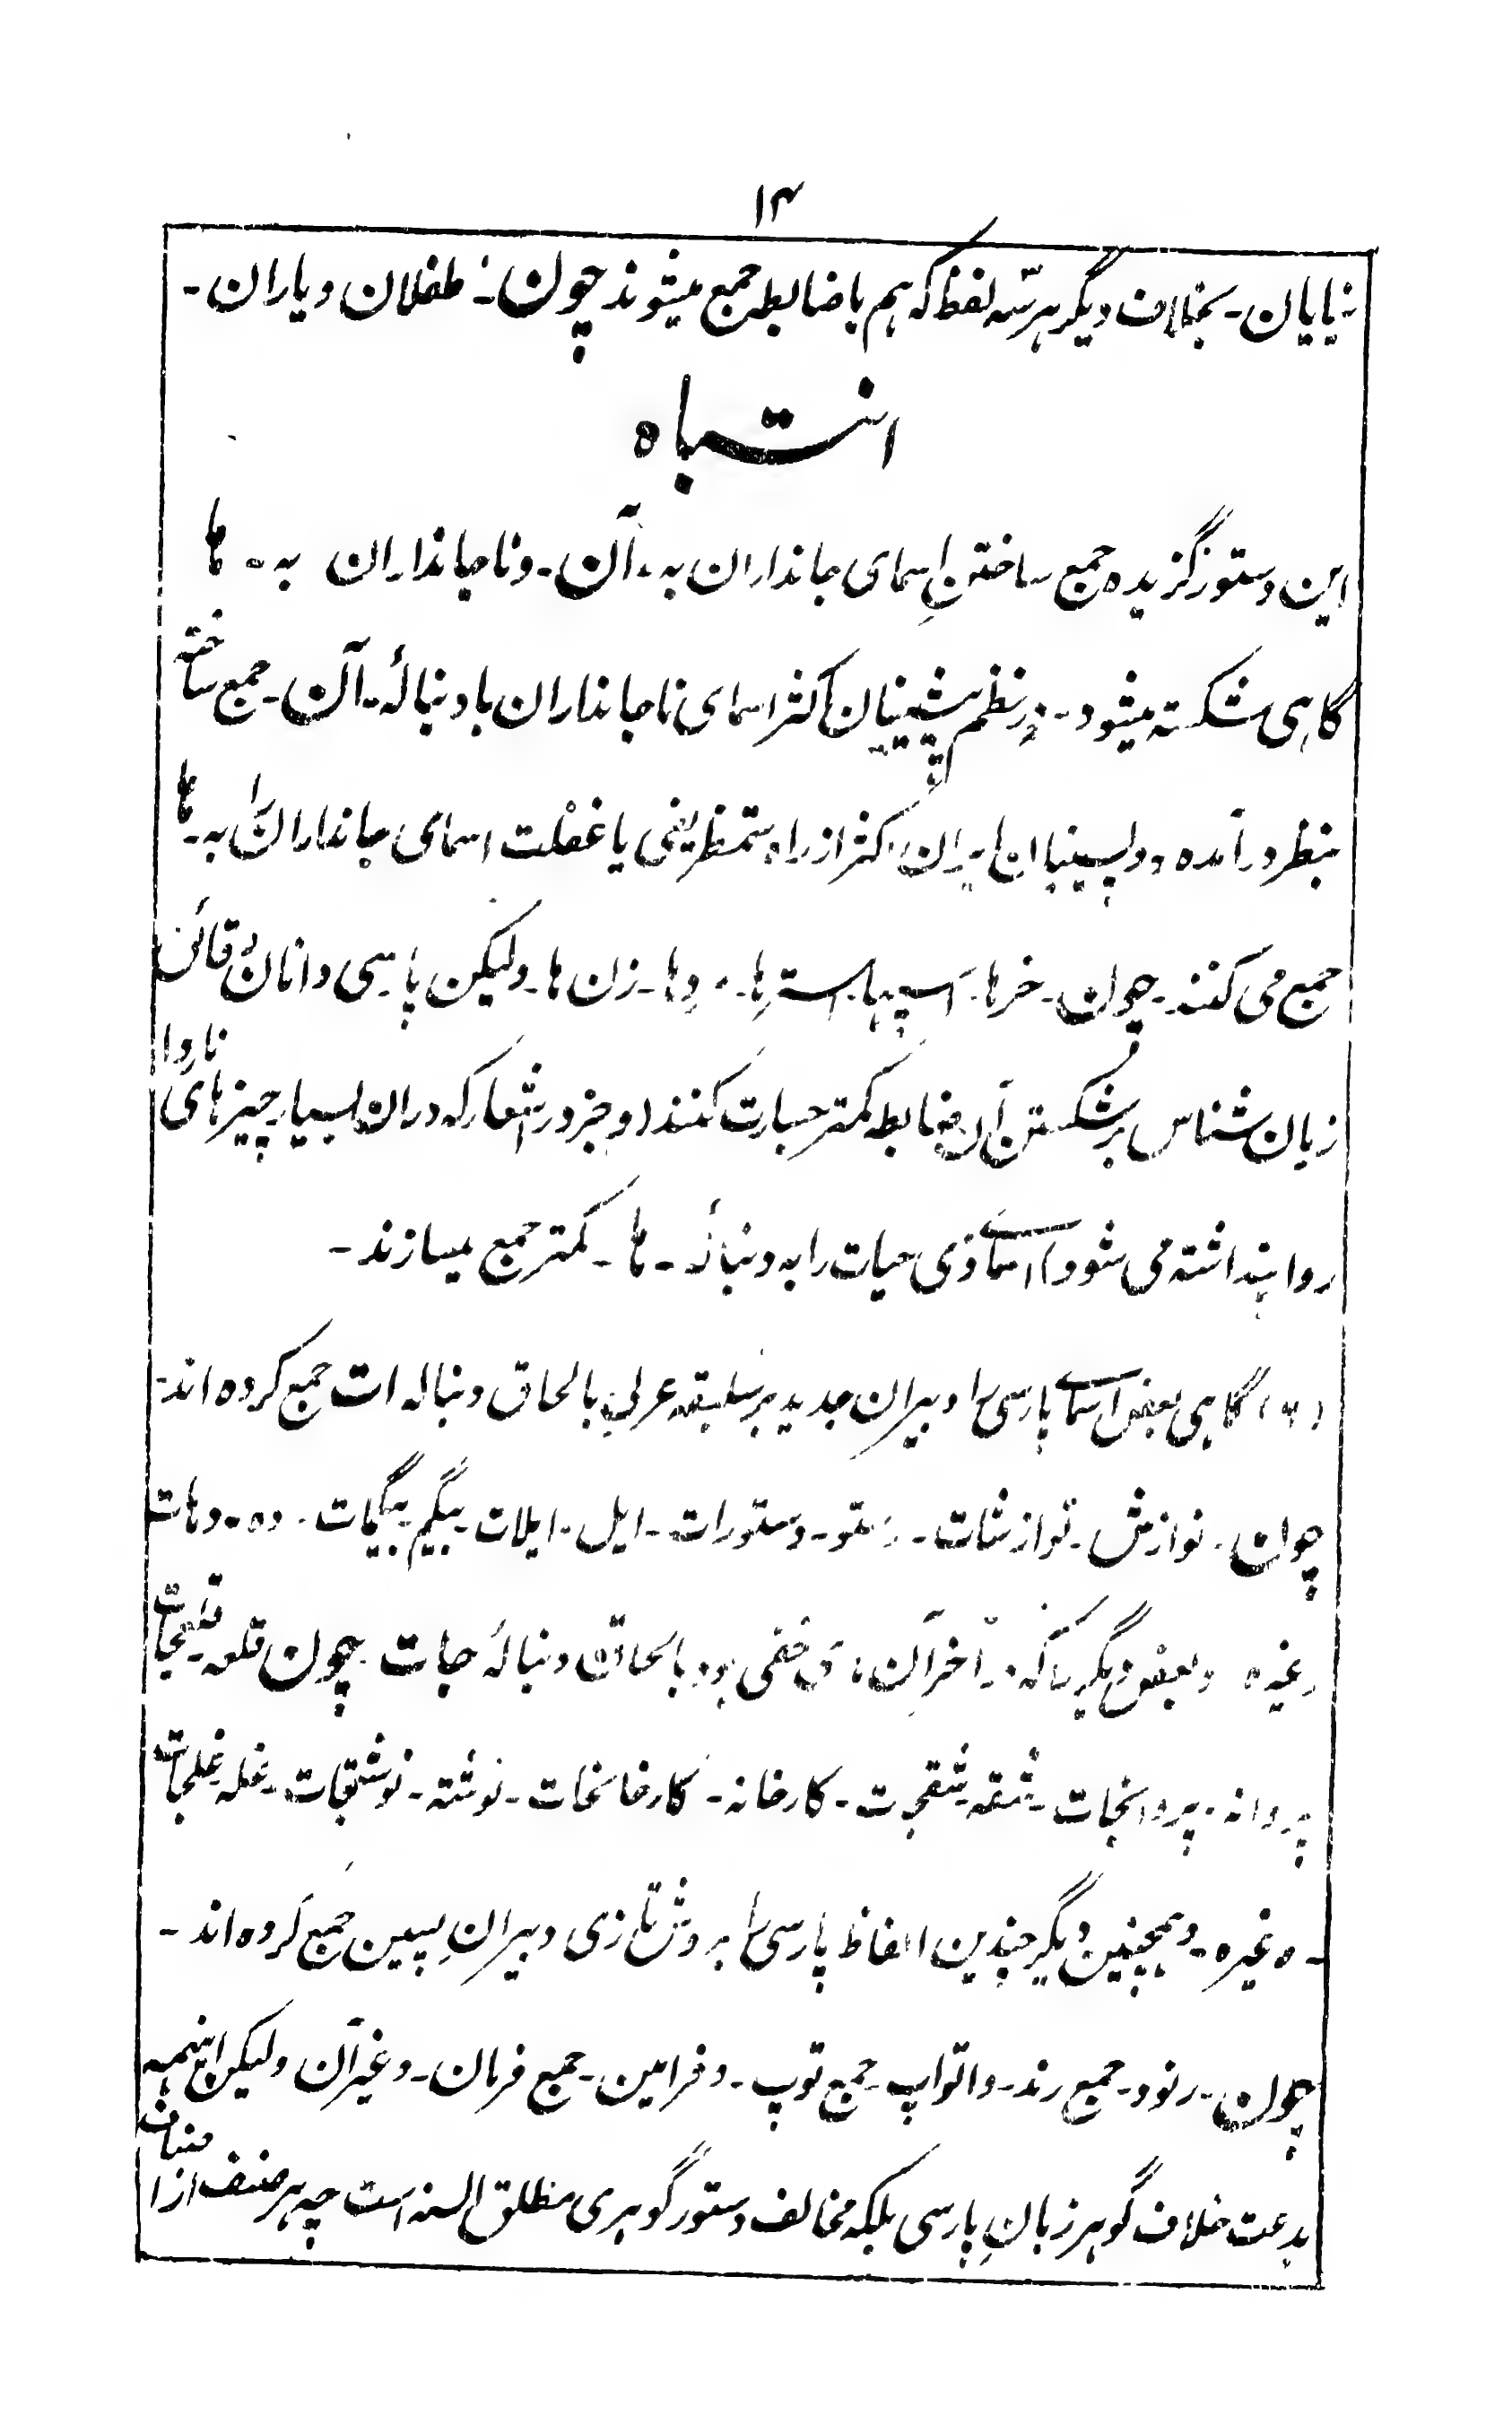 ۱۴
نیایان - بخلاف دیگر هر سه لفظ که هم با ضابطه جمع میشوند چون - طفلان و یاران -
انتباه
این دستور گزیده جمع ساختنِ اسمای جانداران به - آن - و ناجانداران به - ها
گاهی شکسته میشود - در نظم پیشینیان اکثر اسمای ناجانداران با دنبالهٔ - آن - جمع ساخته
بنظر در آمده و پسینیان اکثر از راه ستمظریفی یا غفلت اسمای جانداران را به - ها
جمع می کنند - چون - خرها - اسپها - استرها - زن ها - ولیکن پارسی دانان دقائق
زبان شناس بر شکستن آن ضابطه کمتر جسارت کنند (و جز در اشعار که دران بسیار چیزهای ناروا
روا پنداشته می شود) اسمای ذی حیات را به دنبالهٔ - ها - کمتر جمع میسازند -
(۲) گاهی بعض اسمای پارسی را دبیران جدید بر سلیقه عربی بالحاق دنباله ات جمع کرده اند -
چون - نوازش - نوازشات - دستور - دستورات - ایل - ایلات - بیگم - بیگمات - ده - دهات
وغیره و بعض دیگر را که در آخر آن ہ خفی بود بالحاق دنبالهٔ جات - چون قلعه - قلعجات
پروانه - پروانجات - شقه - شقجات - کارخانه - کارخانجات - نوشته - نوشتجات - غله - غلجات
وغیره - و همچنین دیگر چندین الفاظ پارسی را بروش تازی دبیرانِ پسین جمع کرده اند -
چون - رنود - جمع رند - و اتواپ - جمع توپ - و فرامین - جمع فرمان - و غیر آن ولیکن اینهمه
بدعت خلاف گوهر زبانِ پارسی بلکه مخالف دستور گوهری مطلق السنه است چه هر صنف از